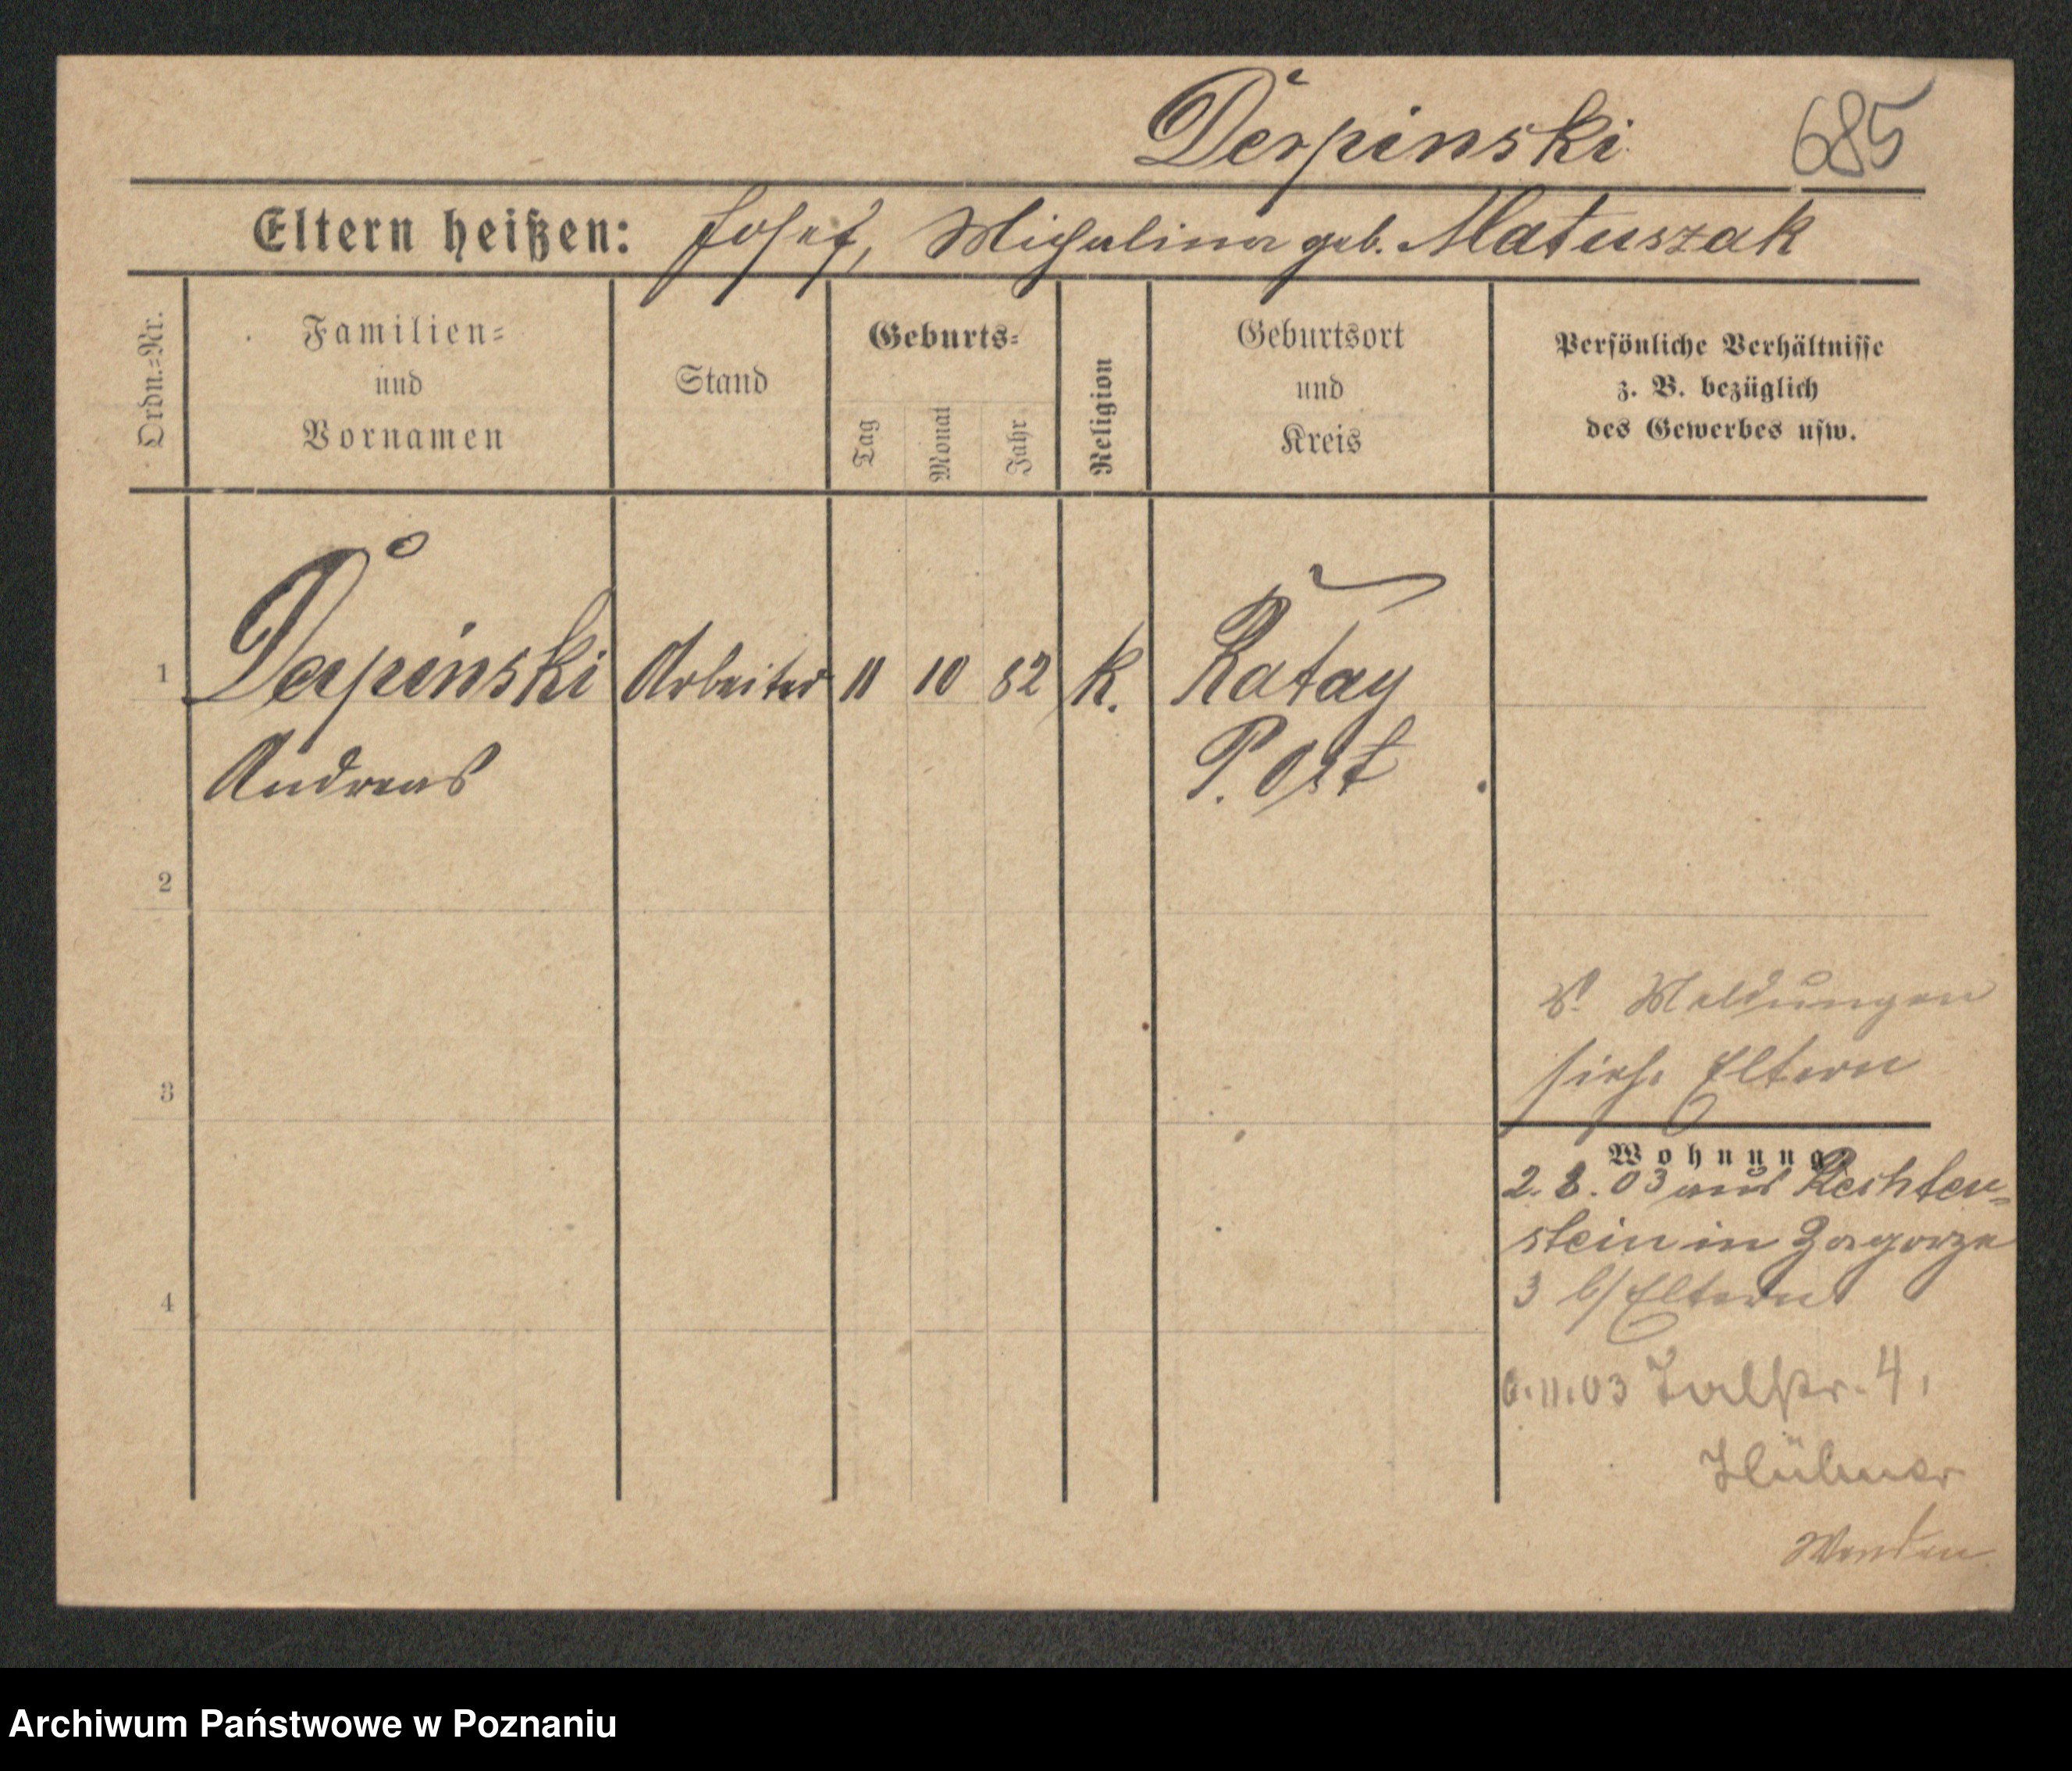 Derpinski 685
Eltern heißen: Josef, Michalina geb. Matuszak
Ordn.=Nr.
Familien=
und
Vornamen
Stand
Geburts=
Tag
Monat
Jahr
Religion
Geburtsort
und
Kreis
Persönliche Verhältnisse
z. B. bezüglich
des Gewerbes usw.
1 Derpinski Arbeiter 11 10 82 k. Ratay
Andreas P. Ost
2
3
4
Meldungen
siehe Eltern
Wohnung
2. 8. 03 aus
stein in Zagorze
3 b/Eltern
11.03 Talstr. 4,
Hübner
Wenden
Archiwum Państwowe w Poznaniu